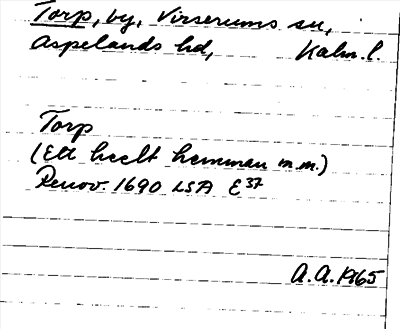 Torp, by, Virserums sn,
Aspelands hd, Kalm. l.
Torp
(Ett heelt hemman m.m.)
Renov. 1690 LSA E³⁷
A.A. 1965